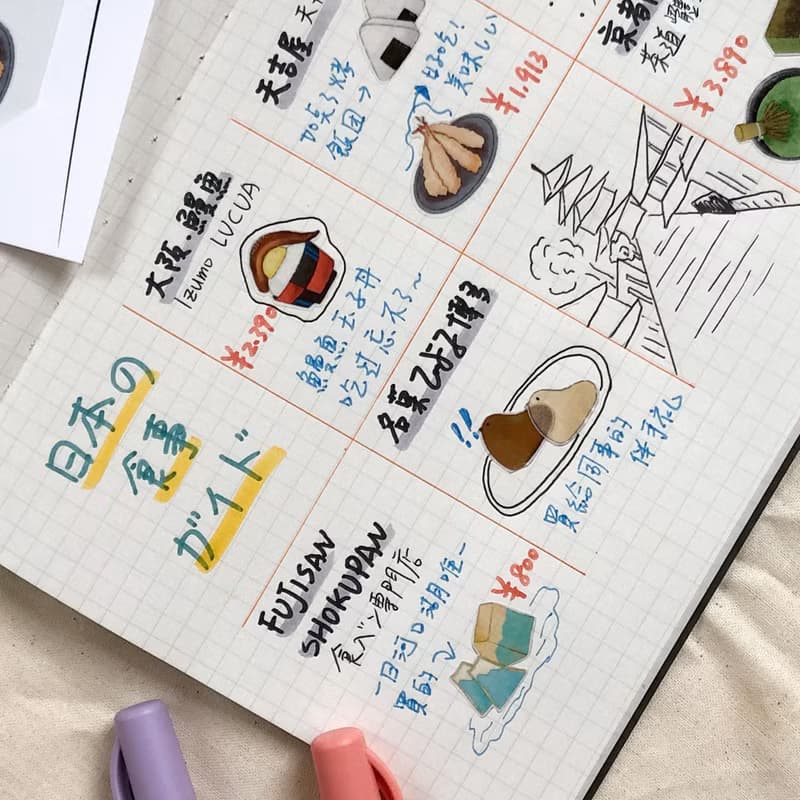 日本の
食事
ガイド
天吉屋
加点了烤
飯団→
好吃!
美味しい
¥1.913
京都
茶道
¥3.890
大阪·鰻魚
Izumo LUCUA
¥2.390
鰻魚玉子丹
吃过忘不了~
名菓ひよ子博多
!!
買給同事的
伴手礼
FUJISAN
SHOKUPAN
食パン専門店
一日河口湖唯一
買的
¥800